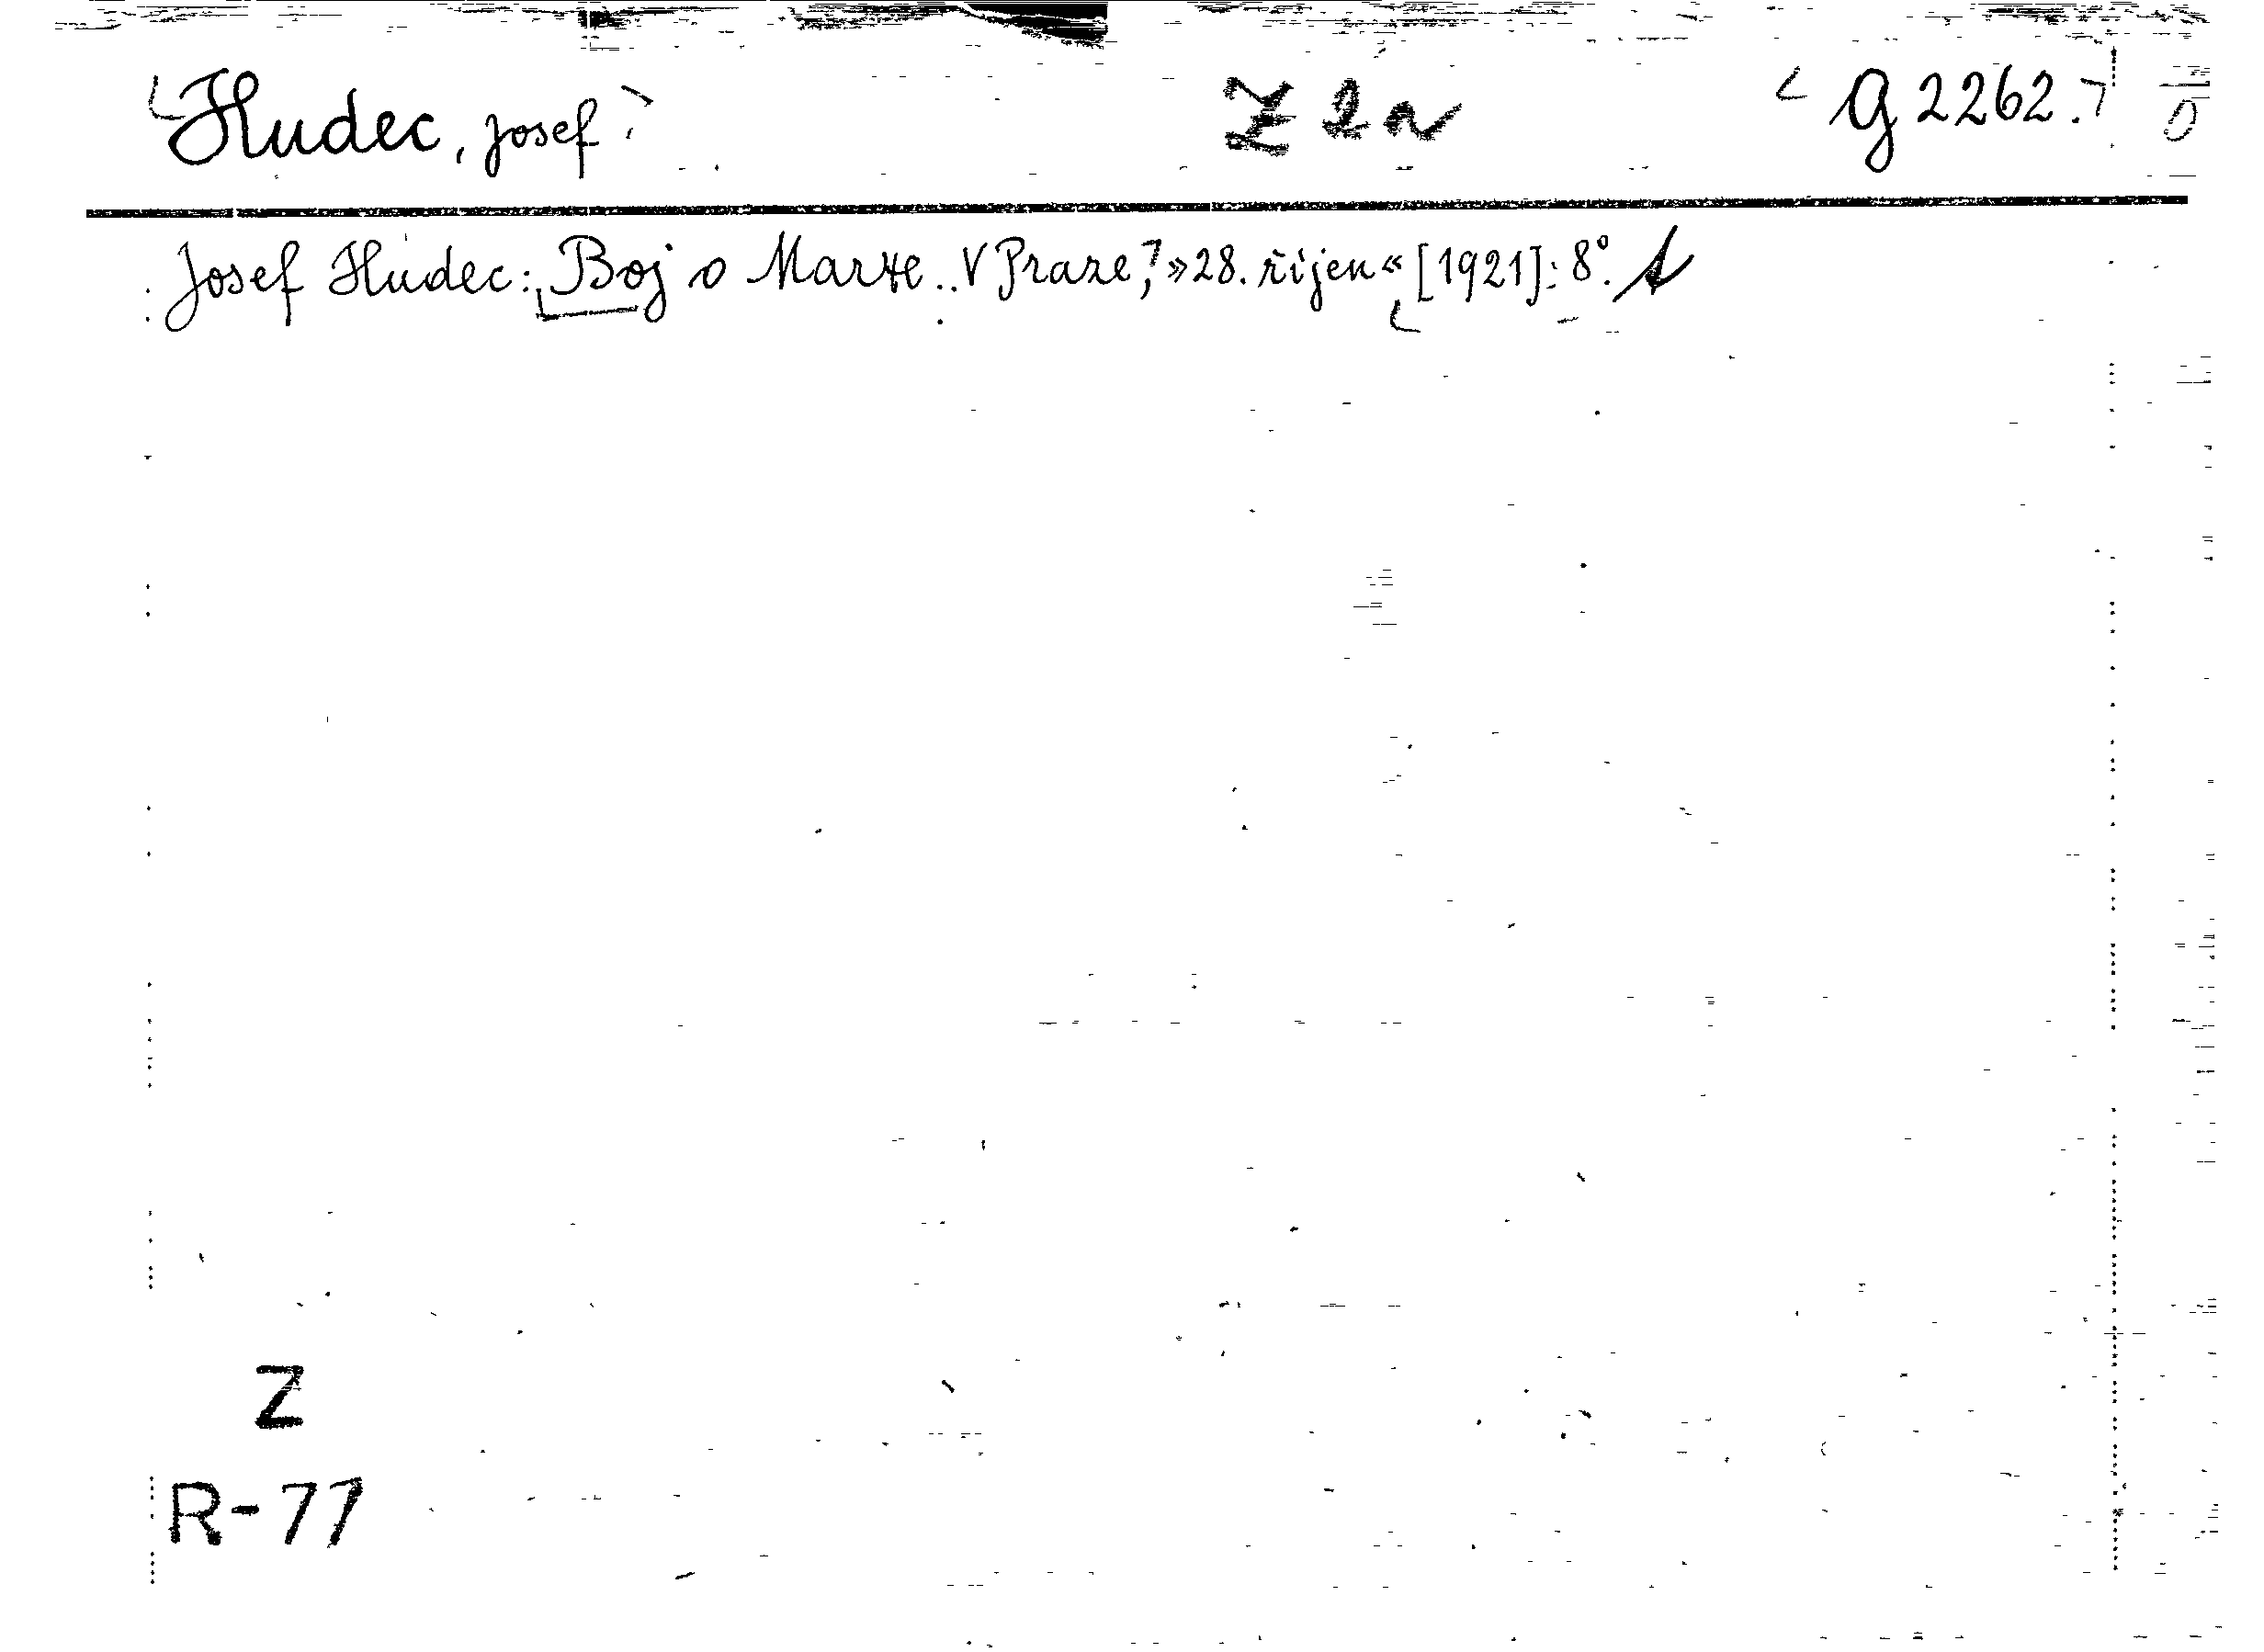 Hudec, Josef Z 2a G 2262.
Josef Hudec: Boj o Marxe.. V Praze, »28. říjen« [1921]: 8°.
Z
R-77